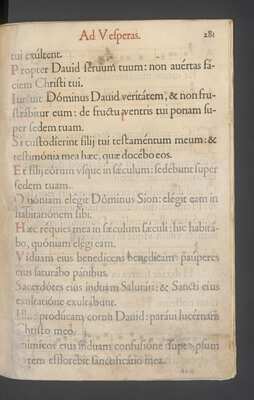 Ad Vesperas. 281
tui exultent.
Propter Dauid seruum tuum: non auértas fá-
ciem Christi tui.
Iurauit Dóminus Dauid veritátem, & non fru-
strábitur eum: de fructu ventris tui ponam su-
per sedem tuam.
Si custodierint filij tui testaméntum meum: &
testimónia mea hæc, quæ docébo eos.
Et filij eórum vsque in sæculum: sedébunt super
sedem tuam.
Quóniam elégit Dóminus Sion: elégit eam in
habitatiónem sibi.
Hæc réquies mea in sæculum sæculi: hic habitá-
bo, quóniam elégi eam.
Víduam eius benedícens benedícam: páuperes
eius saturábo pánibus.
Sacerdótes eius índuam Salutári: & Sancti eius
exultatióne exultábunt.
Illuc prodúcam cornu Dauid: paráui lucérnam
Christo meo.
Inimícos eius índuam confusióne: super ipsum
efflorébit sanctificátio mea.